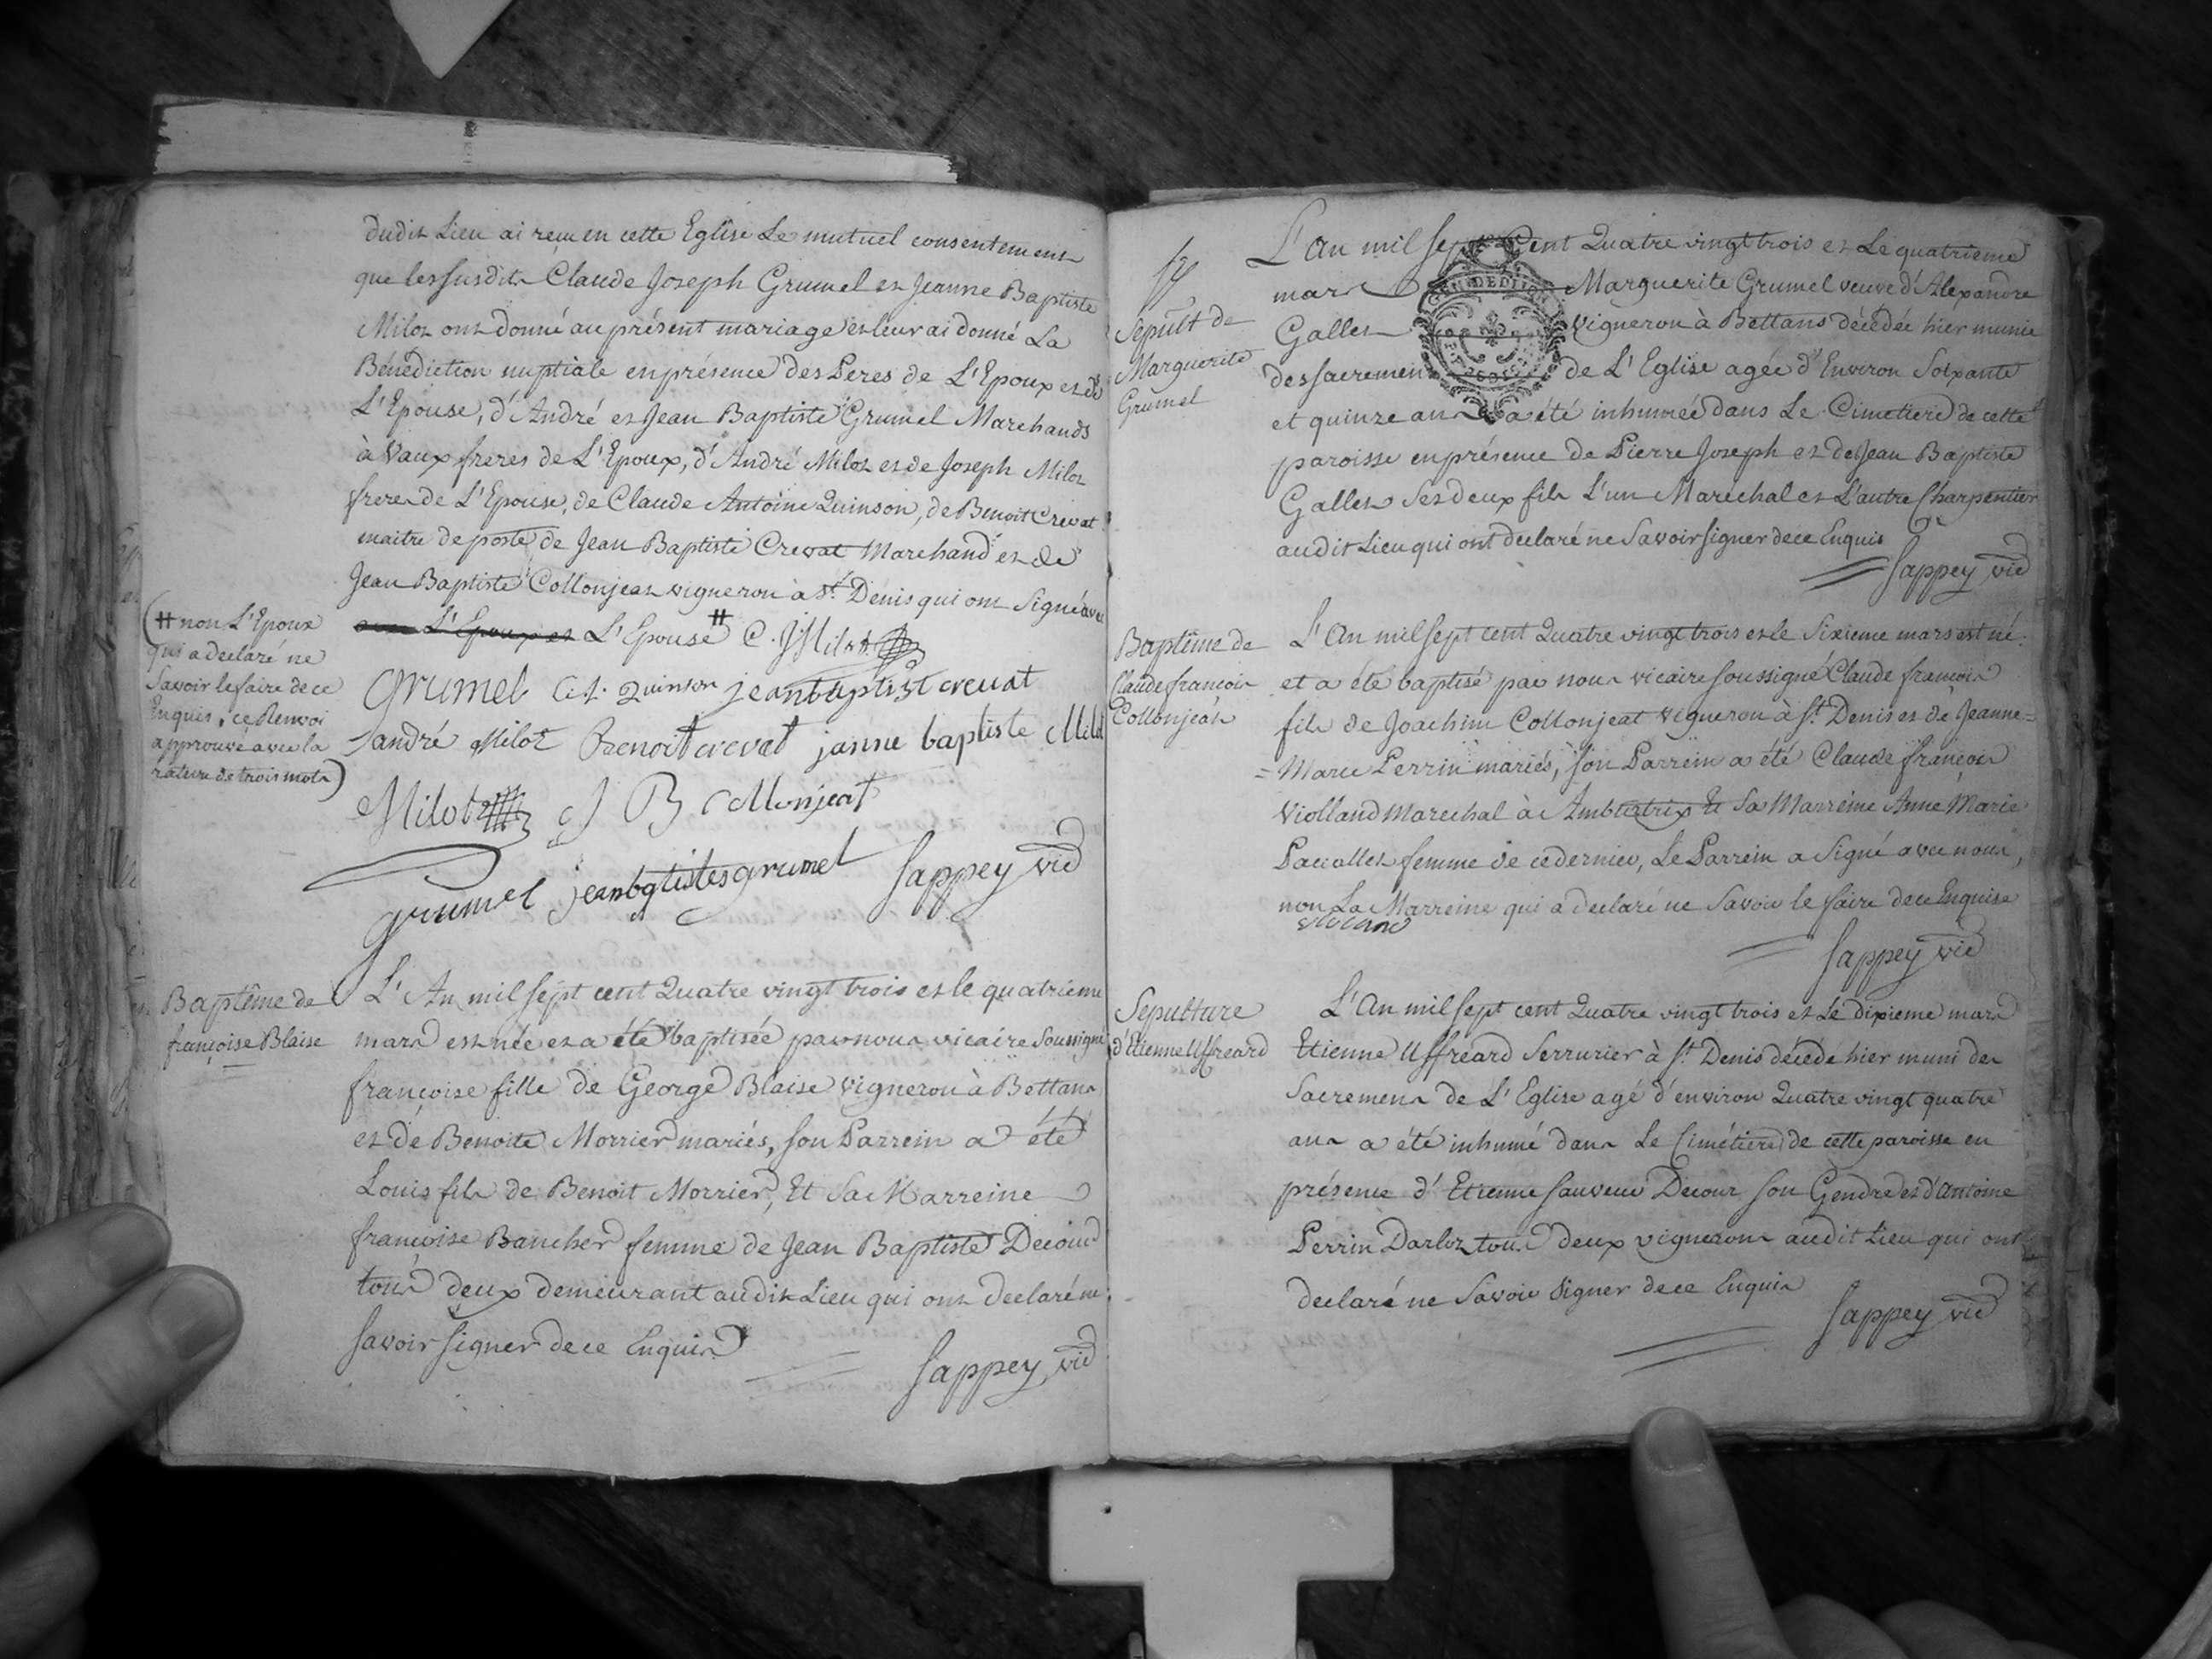 dudit Lieu ai reçu en cette Eglise Le mutuel consentement
que les susdits Claude Joseph Grumel et Jeanne Baptiste
Milot ont donné au présent mariage et leur ai donné La
Bénédiction nuptiale en présence des Peres de L'Epoux et de
L'Epouse, d'André et Jean Baptiste Grumel Marchands
à Vaux freres de L'Epoux, d'André Milot et de Joseph Milot
freres de L'Epouse, de Claude Antoine Quinson, de Benoit Crevat
maitre de poste de Jean Baptiste Crevat Marchand et de
Jean Baptiste Collonjeat vigneron à St. Denis qui ont Signé avec
L'Epoux et L'Epouse # C. J Milot
(# non L'Epoux
qui a declaré ne
Savoir le faire de ce
Enquis, ce Renvoi
approuvé avec la
rature de trois mots)
Grumel C. A. Quinson jeanbaptist crevat
andré Milot Benoit crevat janne baptiste Milot
Milot J B Collonjeat
grumel jeanbatistes grumel Sappey vic
Baptême de
françoise Blaise
L'An mil Sept cent Quatre vingt trois et le quatrieme
mars est née et a été baptisée par nous vicaire Soussigné
françoise fille de George Blaise vigneron à Bettans
et de Benoite Morrier mariés, Son Parrein a été
Louis fils de Benoit Morrier, Et Sa Marreine
françoise Bancher femme de Jean Baptiste Decour
tous deux demeurant audit Lieu qui ont declaré ne
Savoir Signer de ce Enquis
Sappey vic
Sepult de
Marguerite
Grumel
L'An mil Sept Cent Quatre vingt trois et Le quatrieme
mars Marguerite Grumel veuve d'Alexandre
Gallet vigneron à Bettans décédée hier munie
des Sacremens de L'Eglise agée d'Environ Soixante
et quinze ans a été inhumée dans Le Cimetiere de cette
paroisse en présence de Pierre Joseph et de Jean Baptiste
Gallet Ses deux fils L'un Marechal et L'autre Charpentier
audit Lieu qui ont declaré ne Savoir Signer de ce Enquis
Sappey vic
Baptême de
Claude francois
Collonjeat
L'An mil Sept cent Quatre vingt trois et le Sixieme mars est né
et a été baptisé par nous vicaire Soussigné Claude francois
fils de Joachim Collonjeat vigneron à St. Denis et de Jeanne=
=Marie Perrin mariés, Son Parrein a été Claude françois
Violland Marechal à Ambutrix Et Sa Marreine Anne Marie
Paccallet femme de ce dernier, Le Parrein a Signé avec nous,
non La Marreine qui a declaré ne Savoir le faire de ce Enquise
Sappey vic
Sepulture
d'Etienne Uffreard
L'An mil Sept cent Quatre vingt trois et Le dixieme mars
Etienne Uffreard Serrurier à St. Denis décédé hier muni des
Sacremens de L'Eglise agé d'environ Quatre vingt quatre
ans a été inhumé dans Le Cimétiere de cette paroisse en
présence d'Etienne Sauveur Decour Son Gendre et d'Antoine
Perrin Darloz tous deux vignerons audit Lieu qui ont
declaré ne Savoir Signer de ce Enquis
Sappey vic